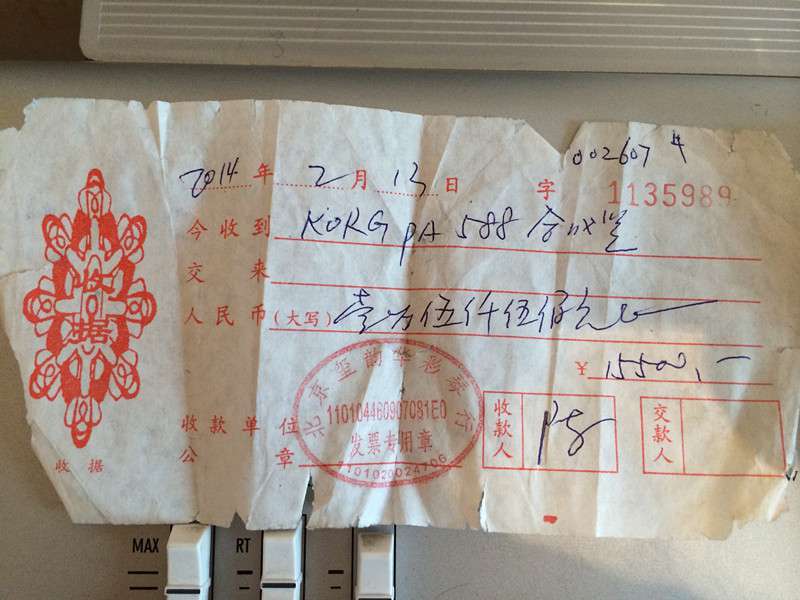 002607
2014年2月13日 字 1135989
今收到 KORG PA 588 合成器
交来
人民币(大写) 壹万伍仟伍佰元正
¥ 15500,—
收款单位
公章
收款人
交款人
110104460907081E0
发票专用章
收据
收据
MAX RT